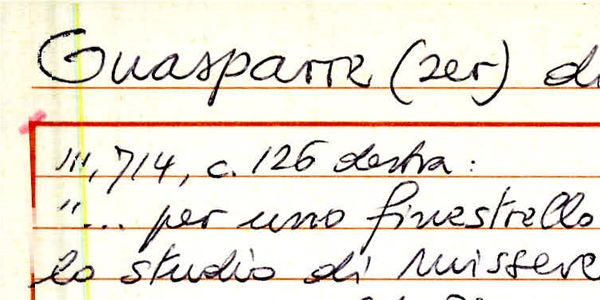 Guasparre (zer) di
III, 714, c. 126 destra:
"... per uno finestrello
lo studio di missere